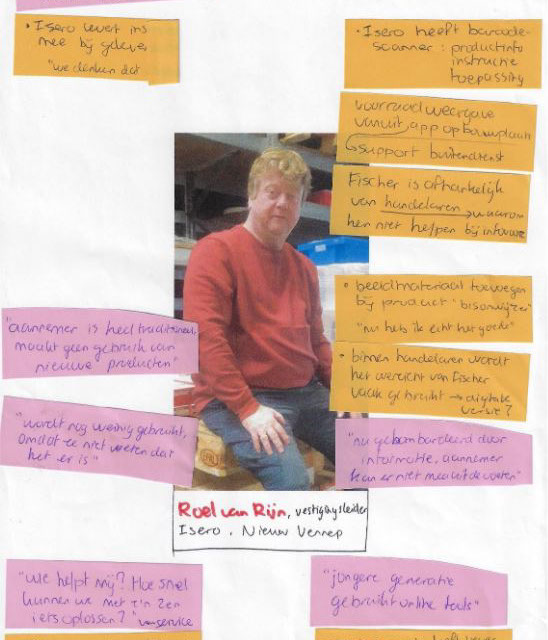 • Isero levert ins
mee bij gdever
"we denken dat
• Isero heeft barcode-
scanner: productinfo
instructie
toepassing
voorraad weergave
vanuit app op bouwplaats
support buitendienst
Fischer is afhankelijk
van handelaren, waarom
hen niet helpen bij informe
• beeldmateriaal toevoegen
bij product "bisonwijzer"
"nu heb ik echt het goede"
"aannemer is heel traditioneel,
maakt geen gebruik van
nieuwe producten"
• binnen handelaren wordt
het overzicht van Fischer
vaak gebruikt → digitale
versie?
"wordt nog weinig gebruikt,
omdat ze niet weten dat
het er is"
"nu gebombardeerd door
informatie, aannemer
kan er niet mee uit de voeten"
Roel van Rijn, vestigingsleider
Isero, Nieuw Vennep
"wie helpt mij? Hoe snel
kunnen we met z'n 2en
iets oplossen?" service
"jongere generatie
gebruikt online tools"